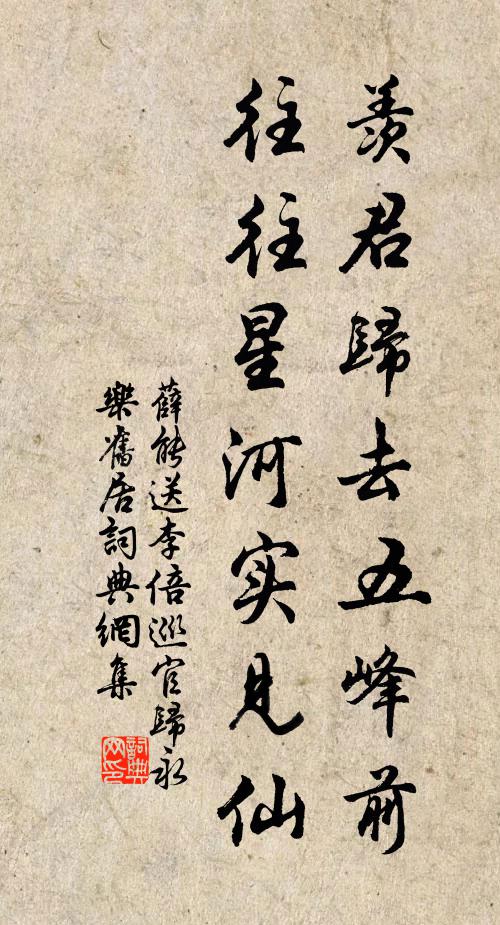 羨君歸去五峰前
往往星河实見仙
薛能送李倍巡官歸永
樂舊居詞典網集
詞典
网印